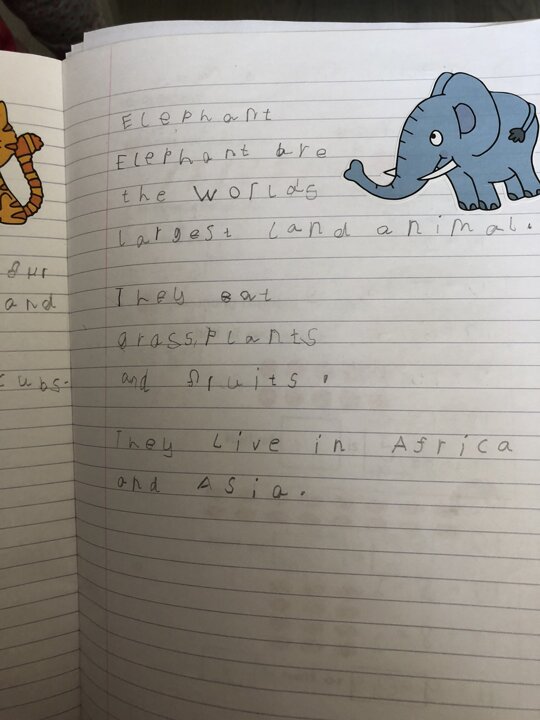 Elephant
Elephant are
the worlds
largest land animal.
They eat
grass, plants
and fruits.
They Live in Africa
and Asia.
fur
and
cubs.